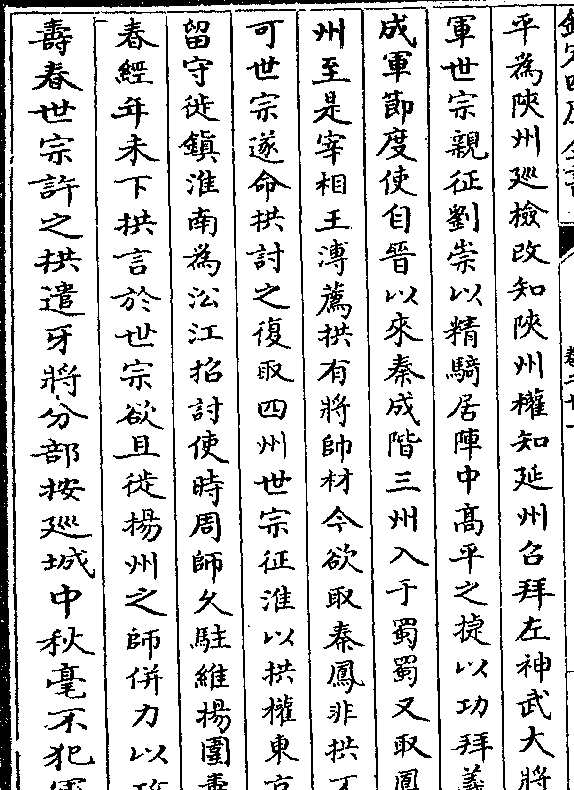 平為陜州廵檢改知陜州權知延州召拜左神武大將
軍世宗親征劉崇以精騎居陣中髙平之㨗以功拜義
成軍節度使自晉以來秦成階三州入于蜀蜀又取鳳
州至是宰相王溥薦拱有將帥材今欲取秦鳳非拱不
可世宗遂命拱討之復取四州世宗征淮以拱權東京
留守徙鎮淮南為㳂江招討使時周師乆駐維揚圍壽
春經年未下拱言於世宗欲且徙揚州之師併力以攻
壽春世宗許之拱遣牙將分部按廵城中秋毫不犯軍